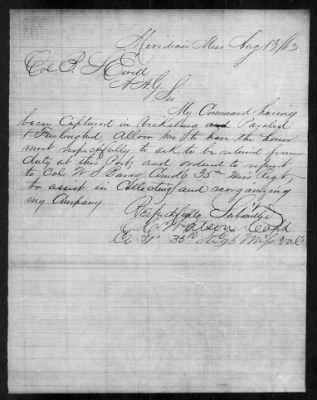 Meridian Miss Aug 13/63
Col B. S. Ewell
A. A. G.
Sir
My Command having
been Captured in Vicksburg and Paroled
& Furloughed, Allow me to have the honor
most respectfully to ask to be relieved from
duty at this Post, and ordered to report
to Col Comdg 35th Miss Regt,
to assist in Collecting and reorganizing
my Company
Respectfully Submitted
Watson Capt
Co. 35th Regt Miss Vol